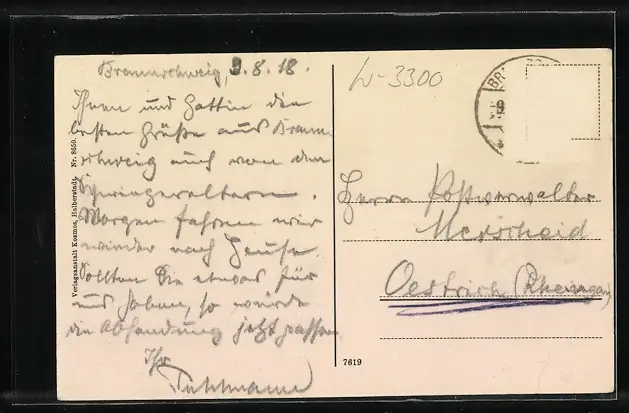 Braunschweig, 9.8.18.
Ihnen und Gattin die
besten Grüße aus Braun-
schweig auch von den
Schwiegereltern.
Morgen fahren wir
wieder nach Hause.
Sollten Sie etwas für
uns haben, so würde
die Absendung jetzt passen.
Ihr
Verlagsanstalt Kosmos, Halberstadt. Nr. 8650.
W-3300
BR
9
Herrn Postverwalter
Merscheid
Oestrich (Rheingau)
7619